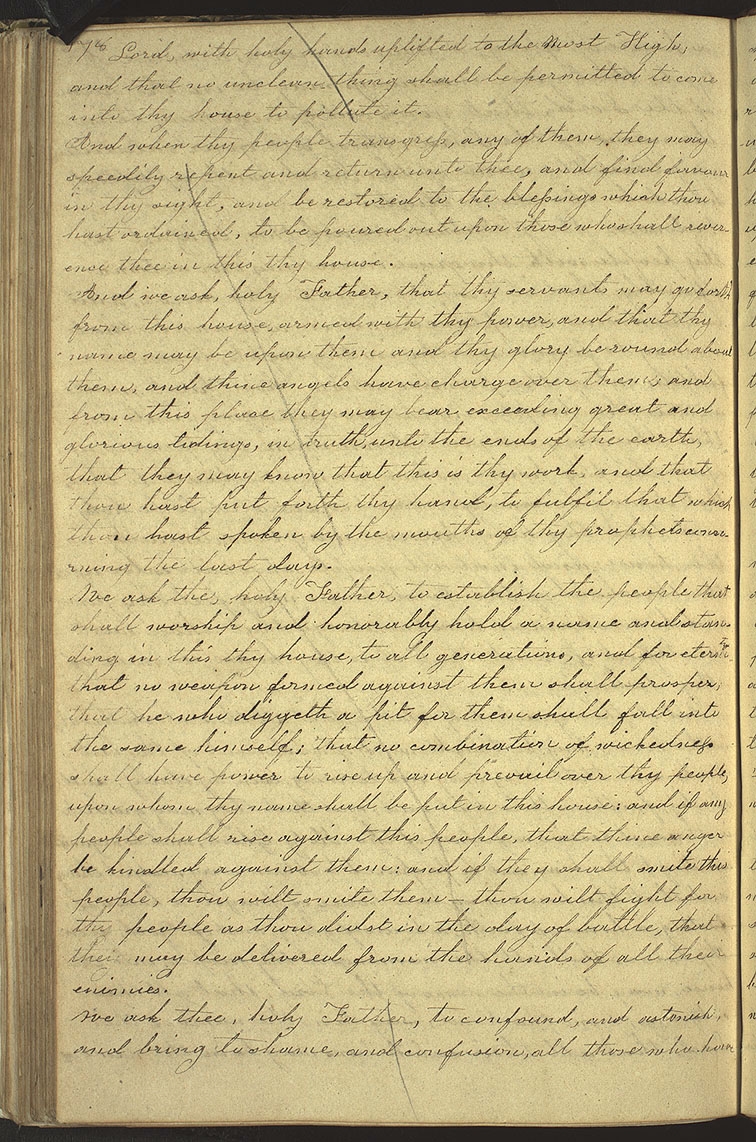 76 Lord, with holy hands uplifted to the Most High,
and that no unclean thing shall be permitted to come
into thy house to pollute it.
And when thy people transgress, any of them, they may
speedily repent and return unto thee, and find favour
in thy sight, and be restored to the blessings which thou
hast ordained, to be poured out upon those who shall rever-
ence thee in this thy house.
And we ask, holy Father, that thy servants may go forth
from this house, armed with thy power, and that thy
name may be upon them and thy glory be round about
them, and thine angels have charge over them; and
from this place they may bear exceeding great and
glorious tidings, in truth, unto the ends of the earth,
that they may know that this is thy work, and that
thou hast put forth thy hand, to fulfil that which
thou hast spoken by the mouths of thy prophets conce-
rning the last days.
We ask the, holy Father, to establish the people that
shall worship and honorably hold a name and stan-
ding in this thy house, to all generations, and for eternity
that no weapon formed against them shall prosper;
that he who diggeth a pit for them shall fall into
the same himself; that no combination of wickedness
shall have power to rise up and prevail over thy people,
upon whom thy name shall be put in this house: and if any
people shall rise against this people, that thine anger
be kindled against them: and if they shall smite this
people, thou wilt smite them — thou wilt fight for
thy people as thou didst in the day of battle, that
they may be delivered from the hands of all their
enimies.
We ask thee, holy Father, to confound, and astonish,
and bring to shame, and confusion, all those who have